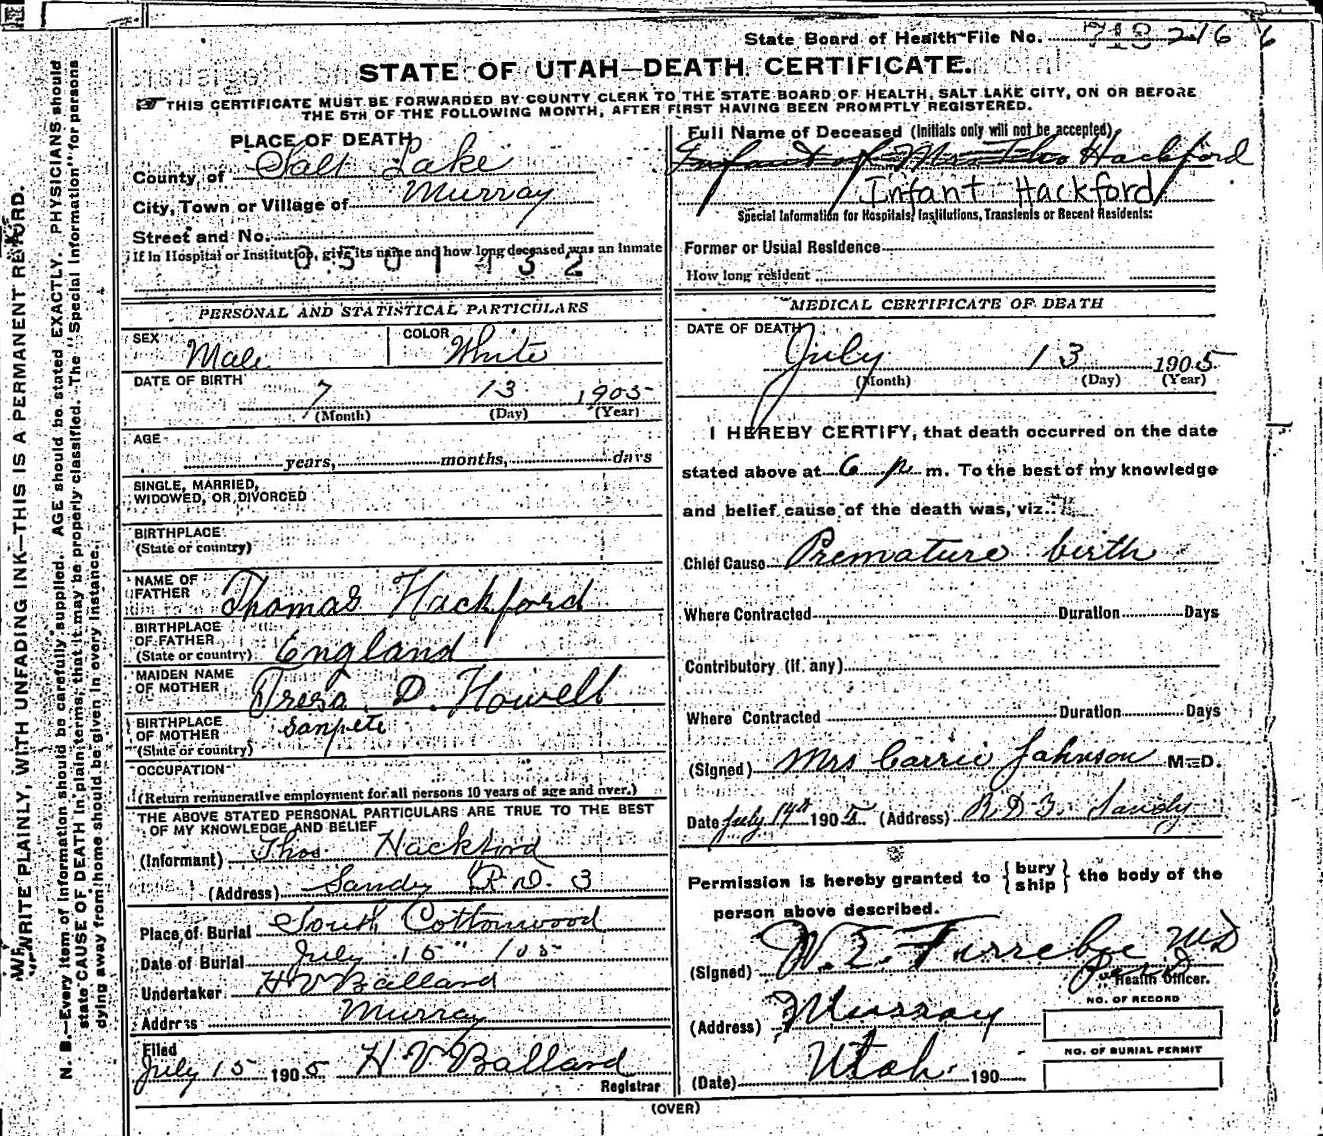 State Board of Health-File No. 216
STATE OF UTAH—DEATH CERTIFICATE.
THIS CERTIFICATE MUST BE FORWARDED BY COUNTY CLERK TO THE STATE BOARD OF HEALTH, SALT LAKE CITY, ON OR BEFORE
THE 5TH OF THE FOLLOWING MONTH, AFTER FIRST HAVING BEEN PROMPTLY REGISTERED.
WRITE PLAINLY, WITH UNFADING INK—THIS IS A PERMANENT RECORD.
N. B.—Every item of information should be carefully supplied. AGE should be stated EXACTLY. PHYSICIANS should
state CAUSE OF DEATH in plain terms, that it may be properly classified. The "Special Information" for persons
dying away from home should be given in every instance.
PLACE OF DEATH
County of Salt Lake
City, Town or Village of Murray
Street and No.
If in Hospital or Institution, give its name and how long deceased was an inmate
0501432
PERSONAL AND STATISTICAL PARTICULARS
SEX Male COLOR White
DATE OF BIRTH 7 13 1905
(Month) (Day) (Year)
AGE
years, months, days
SINGLE, MARRIED,
WIDOWED, OR DIVORCED
BIRTHPLACE
(State or country)
NAME OF
FATHER Thomas Hackford
BIRTHPLACE
OF FATHER
(State or country) England
MAIDEN NAME
OF MOTHER Tresa D. Howell
BIRTHPLACE
OF MOTHER Sanpete
(State or country)
OCCUPATION
(Return remunerative employment for all persons 10 years of age and over.)
THE ABOVE STATED PERSONAL PARTICULARS ARE TRUE TO THE BEST
OF MY KNOWLEDGE AND BELIEF
(Informant) Thos. Hackford
(Address) Sandy R.D. 3
Place of Burial South Cottonwood
Date of Burial July 15" 105
Undertaker H V Ballard
Address Murray
Filed
July 15 1905 H. V. Ballard
Registrar
Full Name of Deceased (Initials only will not be accepted)
Infant of Mr. Tho Hackford
Infant Hackford
Special Information for Hospitals, Institutions, Transients or Recent Residents:
Former or Usual Residence
How long resident
MEDICAL CERTIFICATE OF DEATH
DATE OF DEATH
July 13 1905
(Month) (Day) (Year)
I HEREBY CERTIFY, that death occurred on the date
stated above at 6 p m. To the best of my knowledge
and belief cause of the death was, viz.:
Chief Cause Premature birth
Where Contracted Duration Days
Contributory (if any)
Where Contracted Duration Days
(Signed) Mrs Carrie Johnson M.D.
Date July 14th 1905 (Address) R.D 3. Sandy
Permission is hereby granted to { bury
ship } the body of the
person above described.
(Signed) W. E. MD
Health Officer.
(Address) Murray
Utah
(Date) 190
NO. OF RECORD
NO. OF BURIAL PERMIT
(OVER)